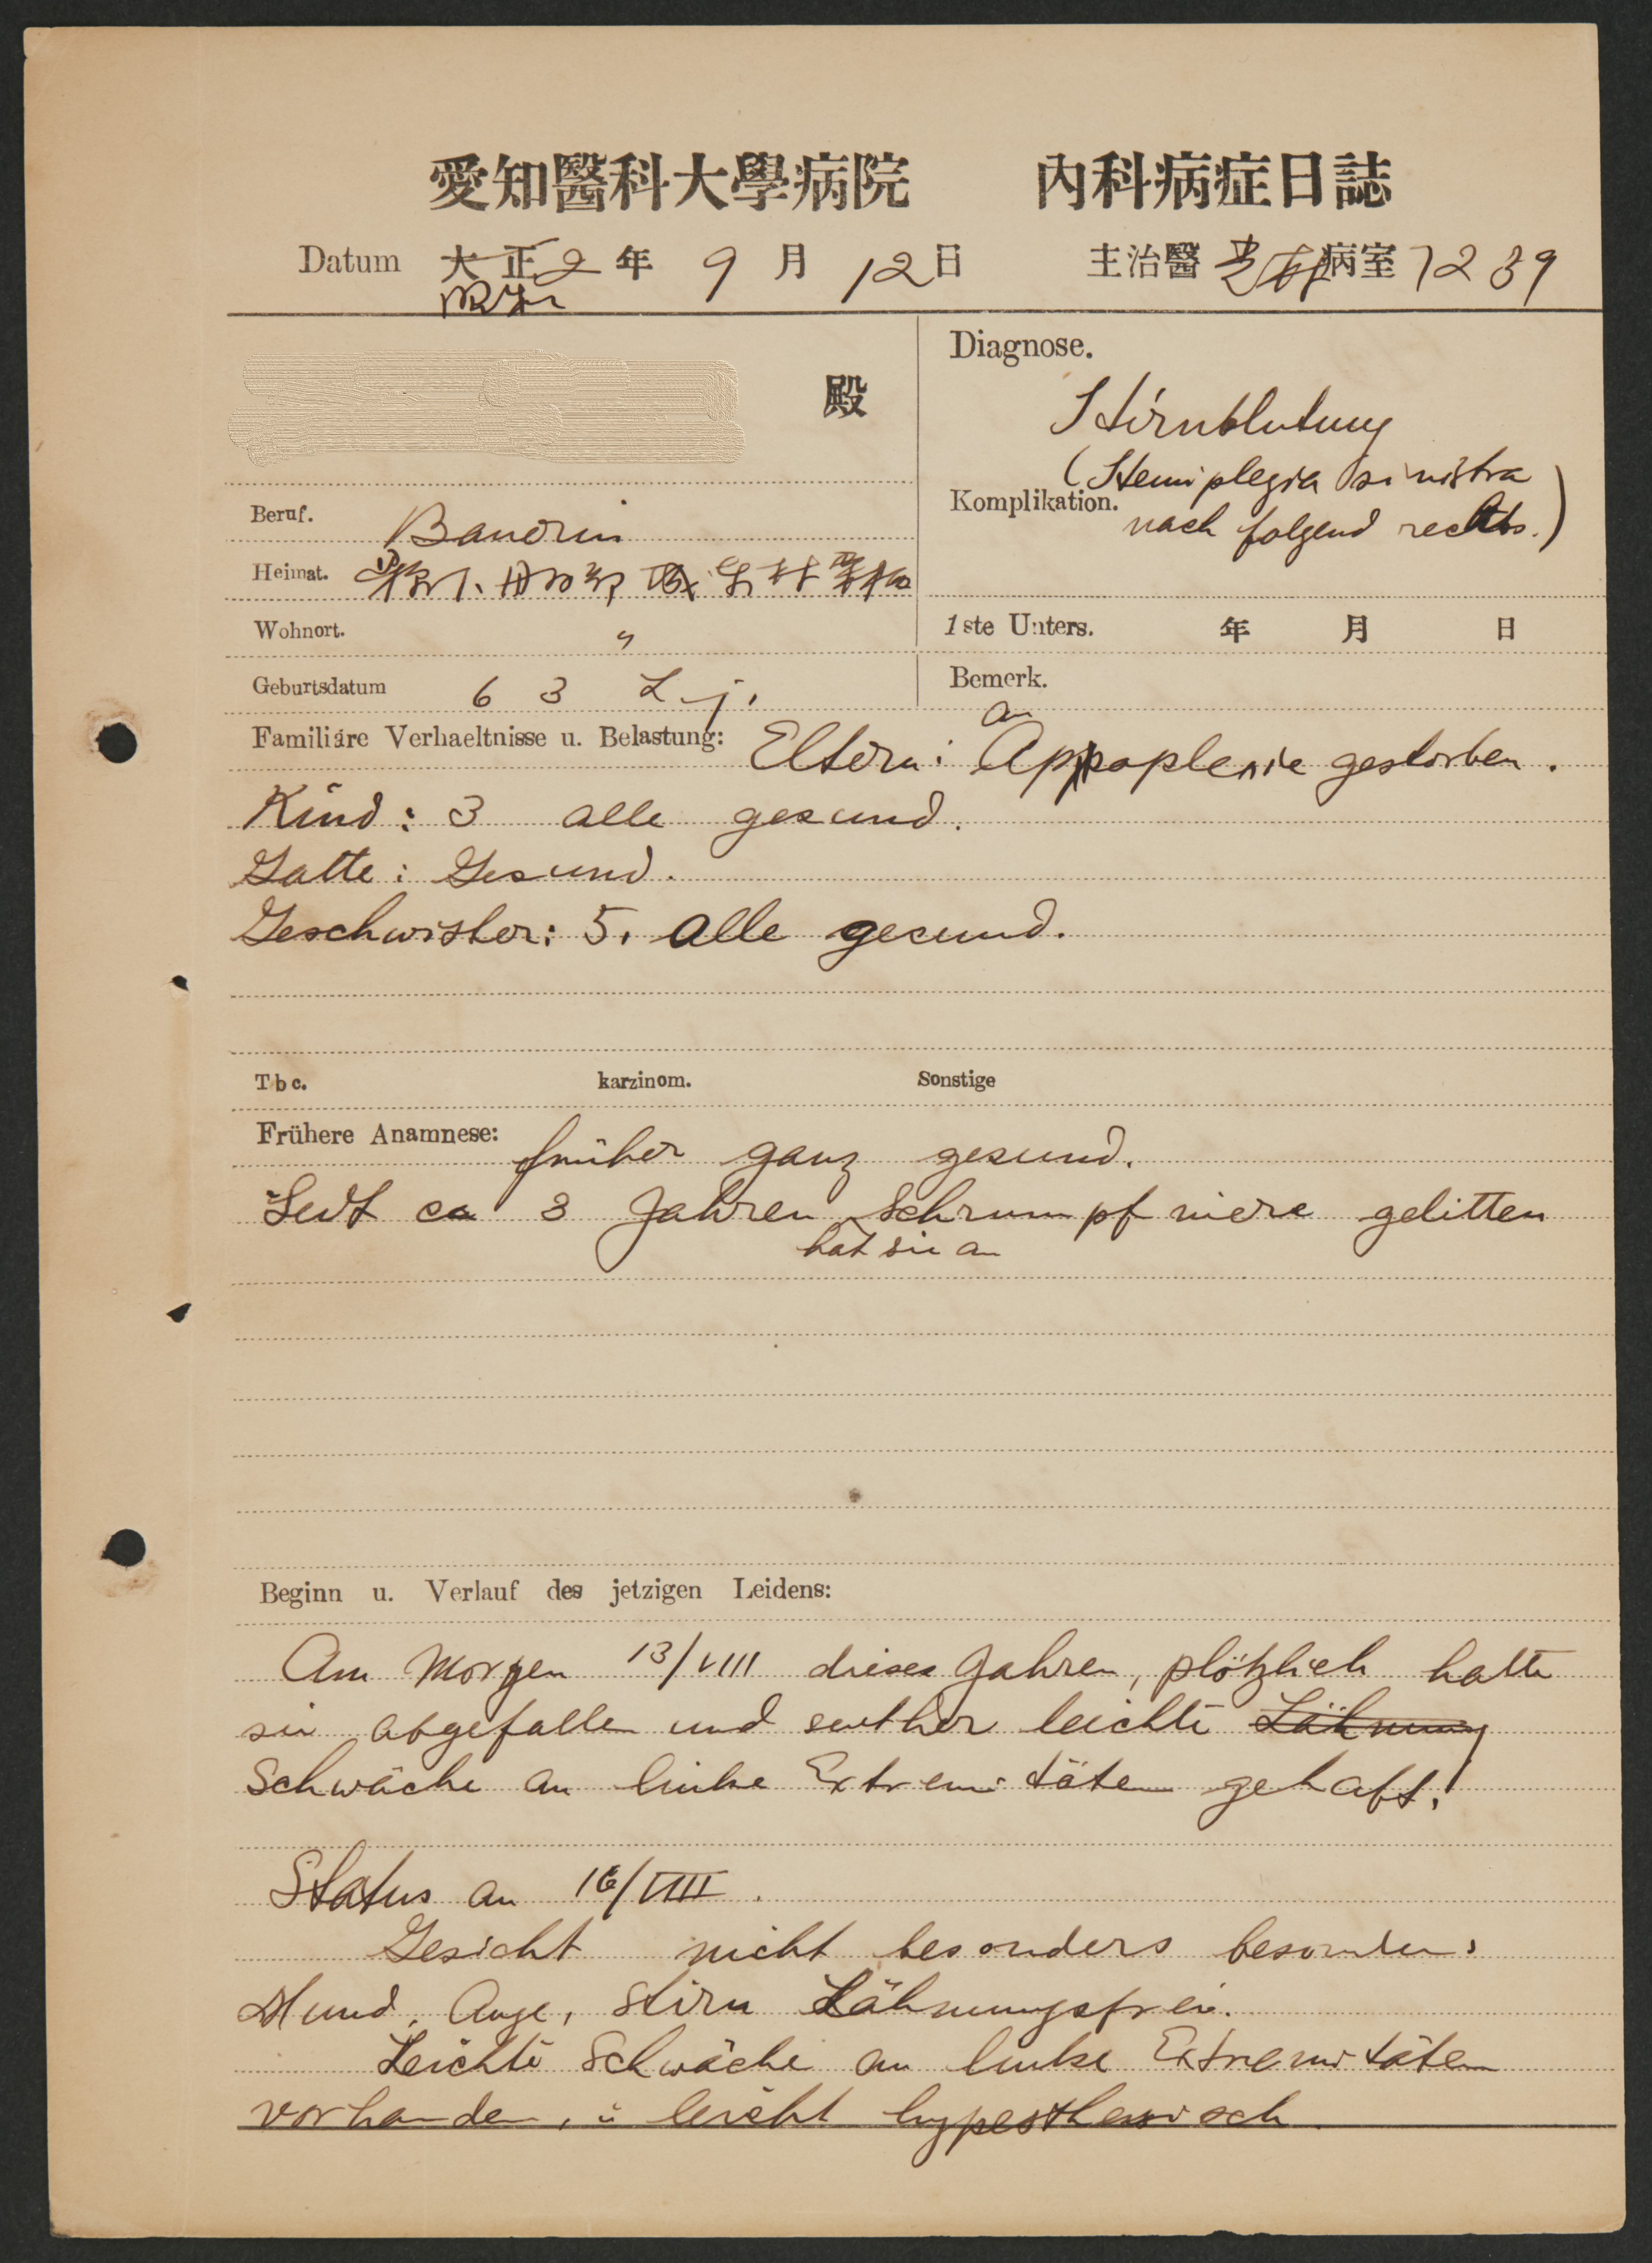 愛知醫科大學病院 內科病症日誌
Datum 大正2年 9月 12日 主治醫 病室 7239
昭和
殿
Diagnose.
Hirnblutung
(Hemiplegia sinistra
Komplikation. nach folgend rechts.)
Beruf. Bauorin
Heimat.
Wohnort. 〃
1ste Unters. 年 月 日
Geburtsdatum 63 L. j.
Bemerk.
Familiäre Verhaeltnisse u. Belastung: Eltern: an Appoplexie gestorben.
Kind: 3 alle gesund.
Gatte: Gesund.
Geschwister: 5. alle gesund.
Tbc. karzinom. Sonstige
Frühere Anamnese: früher ganz gesund.
Seit ca 3 Jahren Schrumpfniere gelitten
hat sie an
Beginn u. Verlauf des jetzigen Leidens:
Am Morgen 13/VIII dieses Jahren, plötzlich hatte
sie abgefallen und seither leichte Lähmung
Schwäche an linke Extremitäten gehabt.
Status an 16/VIII.
Gesicht nicht besonders besonder.
Mund, Auge, Stirn Lähmungsfrei.
Leichte Schwäche an linke Extremitäten
vorhanden, u leicht hypesthesisch